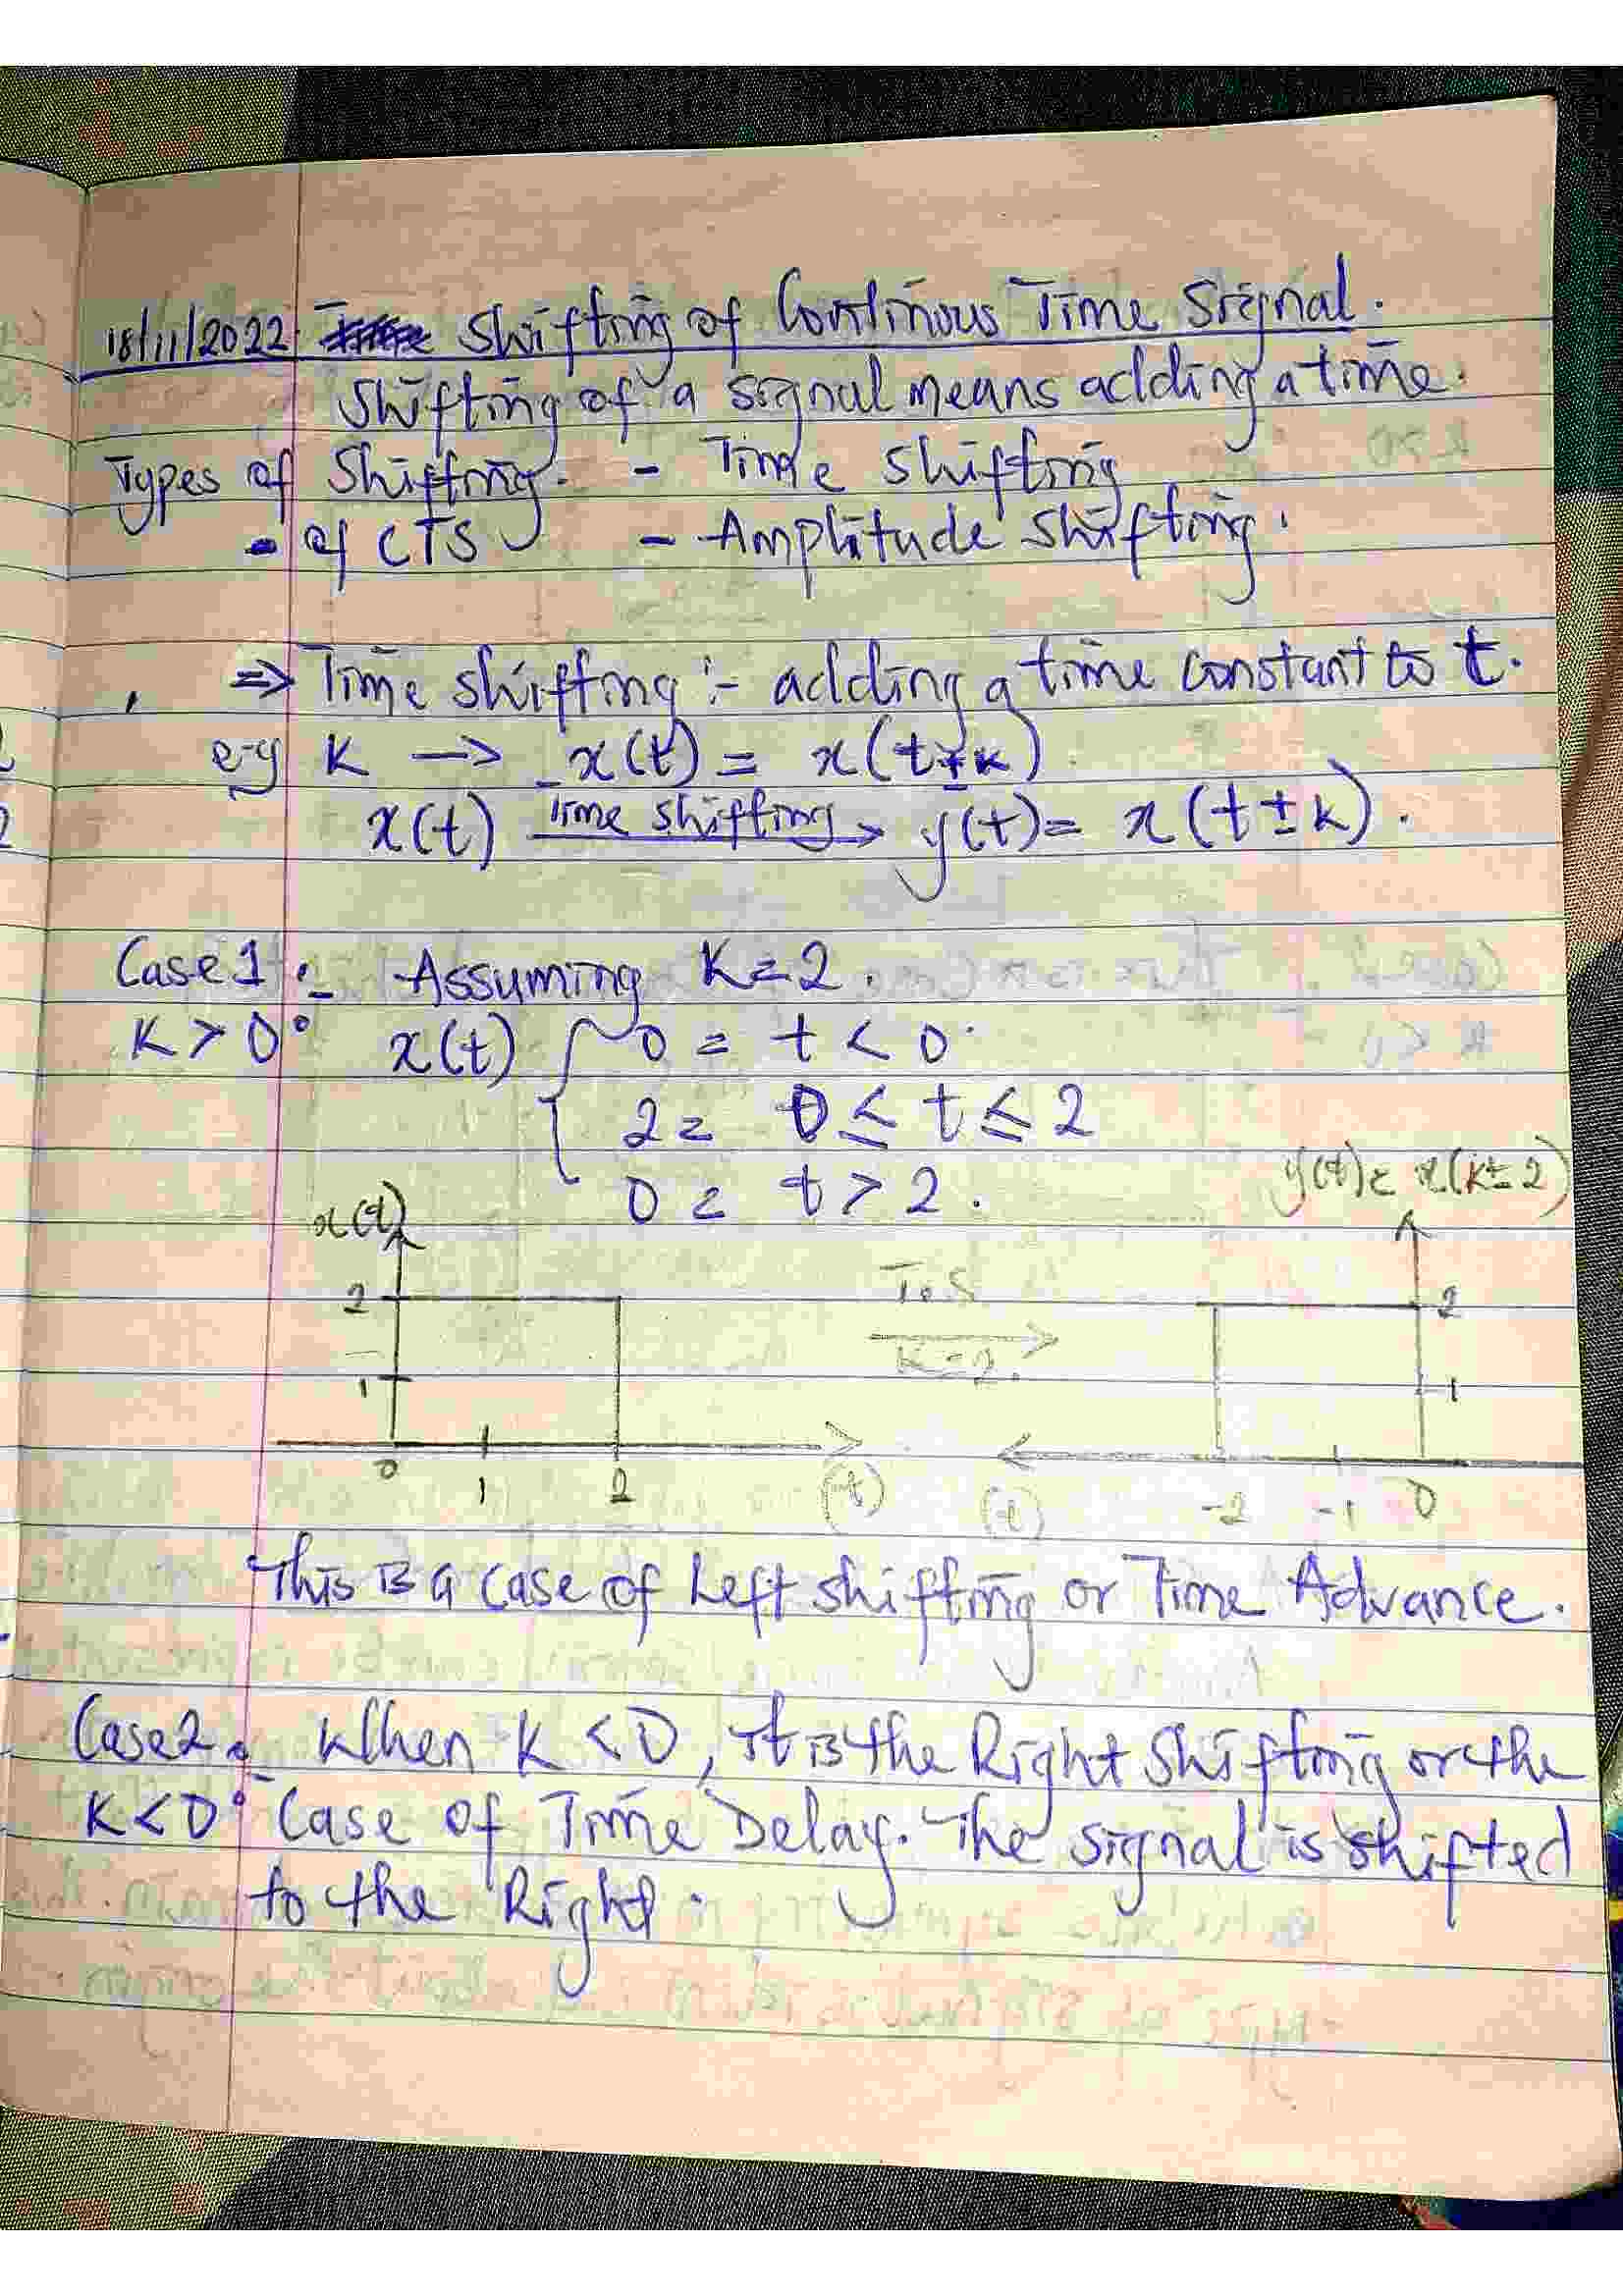 18/11/2022 Shifting of Continous Time Signal.
Shifting of a signal means adding a time.
Types of Shifting. - Time Shifting
- of CTS - Amplitude Shifting.
⇒ Time shifting :- adding a time constant to t.
e-g K → x(t) = x(t±k)
x(t) Time Shifting → y(t) = x(t±k).
Case 1 :- Assuming K=2.
K > 0° x(t) { 0 = t < 0
2 = 0 ≤ t ≤ 2
0 = t > 2.
x(t) y(t) = x(k±2)
2 T.S 2
1 K=2. 1
0 1 2 (t) (t) -2 -1 0
This is a case of Left shifting or Time Advance.
Case 2 :- When K < 0, it is the Right Shifting or the
K < 0° Case of Time Delay. The signal is shifted
to the Right.